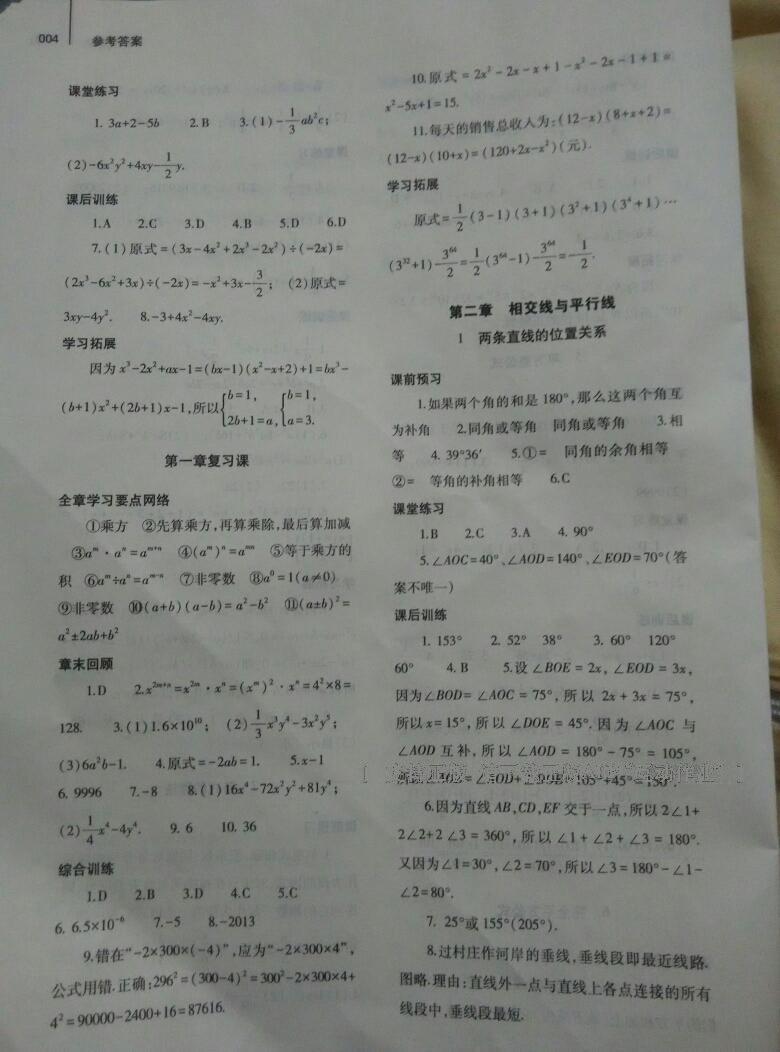 004 参考答案
课堂练习
1. 3a+2-5b 2. B 3.(1)-1/3ab²c;
(2)-6x²y²+4xy-1/2y.
课后训练
1.A 2.C 3.D 4.B 5.D 6.D
7.(1)原式=(3x-4x²+2x³-2x²)÷(-2x)=
(2x³-6x²+3x)÷(-2x)=-x²+3x-3/2; (2)原式=
3xy-4y². 8.-3+4x²-4xy.
学习拓展
因为x³-2x²+ax-1=(bx-1)(x²-x+2)+1=bx³-
(b+1)x²+(2b+1)x-1,所以{b=1, 2b+1=a, {b=1, a=3.
第一章复习课
全章学习要点网络
①乘方 ②先算乘方,再算乘除,最后算加减
③aᵐ·aⁿ=aᵐ⁺ⁿ ④(aᵐ)ⁿ=aᵐⁿ ⑤等于乘方的
积 ⑥aᵐ÷aⁿ=aᵐ⁻ⁿ ⑦非零数 ⑧a⁰=1(a≠0)
⑨非零数 ⑩(a+b)(a-b)=a²-b² ⑪(a±b)²=
a²±2ab+b²
章末回顾
1.D 2.x²ᵐ⁺ⁿ=x²ᵐ·xⁿ=(xᵐ)²·xⁿ=4²×8=
128. 3.(1)1.6×10¹⁰; (2)1/3x³y⁴-3x²y⁵;
(3)6a²b-1. 4.原式=-2ab=1. 5.x-1
6. 9996 7.-8 8.(1)16x⁴-72x²y²+81y⁴;
(2)1/4x⁴-4y⁴. 9. 6 10. 36
综合训练
1.D 2.B 3.D 4.C 5.C
6. 6.5×10⁻⁶ 7.-5 8.-2013
9.错在“-2×300×(-4)”,应为“-2×300×4”,
公式用错.正确:296²=(300-4)²=300²-2×300×4+
4²=90000-2400+16=87616.
10.原式=2x²-2x-x+1-x²-2x-1+1=
x²-5x+1=15.
11.每天的销售总收入为:(12-x)(8+x+2)=
(12-x)(10+x)=(120+2x-x²)(元).
学习拓展
原式=1/2(3-1)(3+1)(3²+1)(3⁴+1)…
(3³²+1)-3⁶⁴/2=1/2(3⁶⁴-1)-3⁶⁴/2=-1/2.
第二章 相交线与平行线
1 两条直线的位置关系
课前预习
1.如果两个角的和是180°,那么这两个角互
为补角 2.同角或等角 同角或等角 3.相
等 4. 39°36′ 5.①= 同角的余角相等
②= 等角的补角相等 6.C
课堂练习
1.B 2.C 3.A 4. 90°
5.∠AOC=40°、∠AOD=140°、∠EOD=70°(答
案不唯一)
课后训练
1. 153° 2. 52° 38° 3. 60° 120°
60° 4. B 5.设∠BOE=2x,∠EOD=3x,
因为∠BOD=∠AOC=75°,所以 2x+3x=75°,
所以x=15°,所以∠DOE=45°.因为∠AOC与
∠AOD互补,所以∠AOD=180°-75°=105°,
所以∠AOE=∠AOD+∠DOE=105°+45°=150°.
6.因为直线AB,CD,EF交于一点,所以2∠1+
2∠2+2∠3=360°,所以∠1+∠2+∠3=180°.
又因为∠1=30°,∠2=70°,所以∠3=180°-∠1-
∠2=80°.
7. 25°或155°(205°).
8.过村庄作河岸的垂线,垂线段即最近线路.
图略.理由:直线外一点与直线上各点连接的所有
线段中,垂线段最短.